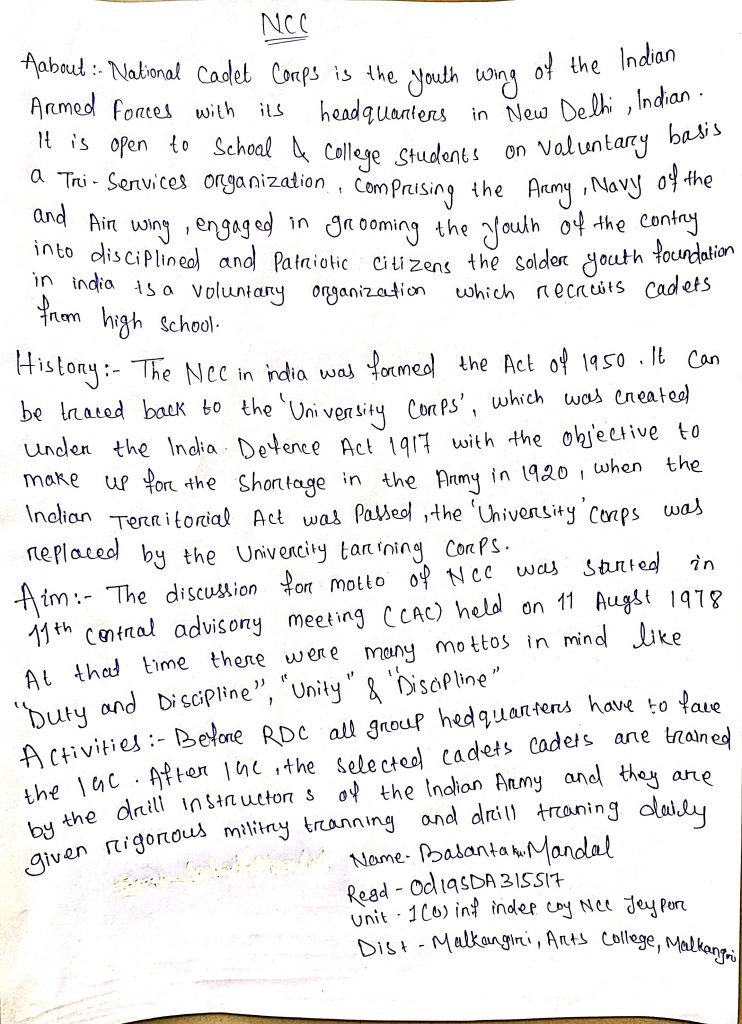 NCC
Aabout :- National Cadet Corps is the youth wing of the Indian
Armed forces with its headquarters in New Delhi, Indian.
It is open to School & College students on valuntary basis
a Tri-Services organization, Comprising the Army, Navy of the
and Air wing, engaged in grooming the youth of the contry
into disciplined and Patriotic citizens the solder youth foundation
in india is a voluntary organization which recruits cadets
from high school.
History:- The NCC in india was formed the Act of 1950. It can
be traced back to the 'University Corps', which was created
under the India Defence Act 1917 with the objective to
make up for the shortage in the Army in 1920, when the
Indian Territorial Act was Passed, the 'University' corps was
replaced by the Univercity tarining Corps.
Aim:- The discussion for motto of NCC was started in
11th central advisory meeting (CAC) held on 11 Augst 1978
At that time there were many mottos in mind like
"Duty and Discipline", "Unity" & "Discipline"
Activities:- Before RDC all group hedquarters have to fave
the IGC. After IGC, the selected cadets cadets are trained
by the drill instructors of the Indian Army and they are
given rigorous militry tranning and drill traning daily
Name- Basanta Kr Mandal
Regd - Od19SDA315517
Unit - 1(O) inf indep coy NCC Jeypor
Dist - Malkangiri, Arts College, Malkangiri